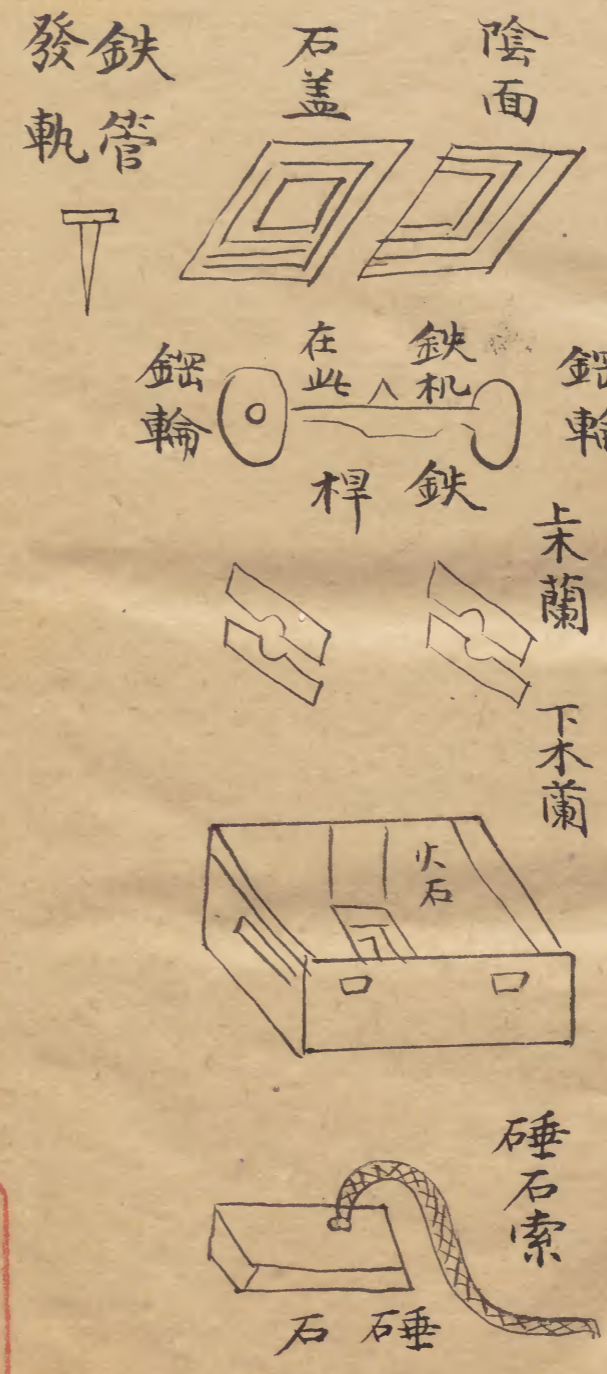 陰面
石盖
鉄管
發軌
鋼輪
鉄机
在此
鋼輪
鉄桿
上木蘭
下木蘭
火石
硾石索
硾石